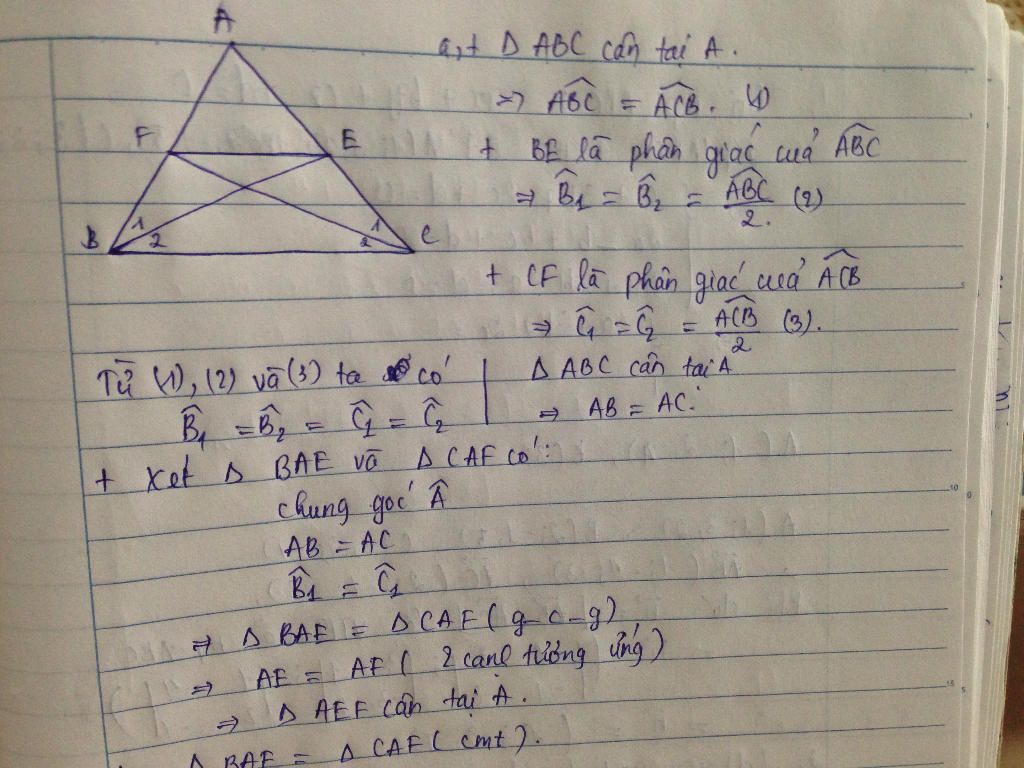 A
F
E
B
1
2
1
2
C
a, + Δ ABC cân tại A.
⇒ \widehat{ABC} = \widehat{ACB}. (1)
+ BE là phân giác của \widehat{ABC}
⇒ \hat{B}_1 = \hat{B}_2 = \frac{\widehat{ABC}}{2}. (2)
+ CF là phân giác của \widehat{ACB}
⇒ \hat{C}_1 = \hat{C}_2 = \frac{\widehat{ACB}}{2} (3).
Từ (1), (2) và (3) ta có
\hat{B}_1 = \hat{B}_2 = \hat{C}_1 = \hat{C}_2
Δ ABC cân tại A
⇒ AB = AC.
+ Xét Δ BAE và Δ CAF có:
chung góc \hat{A}
AB = AC
\hat{B}_1 = \hat{C}_1
⇒ Δ BAE = Δ CAF (g-c-g)
⇒ AE = AF ( 2 cạnh tương ứng )
⇒ Δ AEF cân tại A.
Δ BAE = Δ CAF ( cmt ).